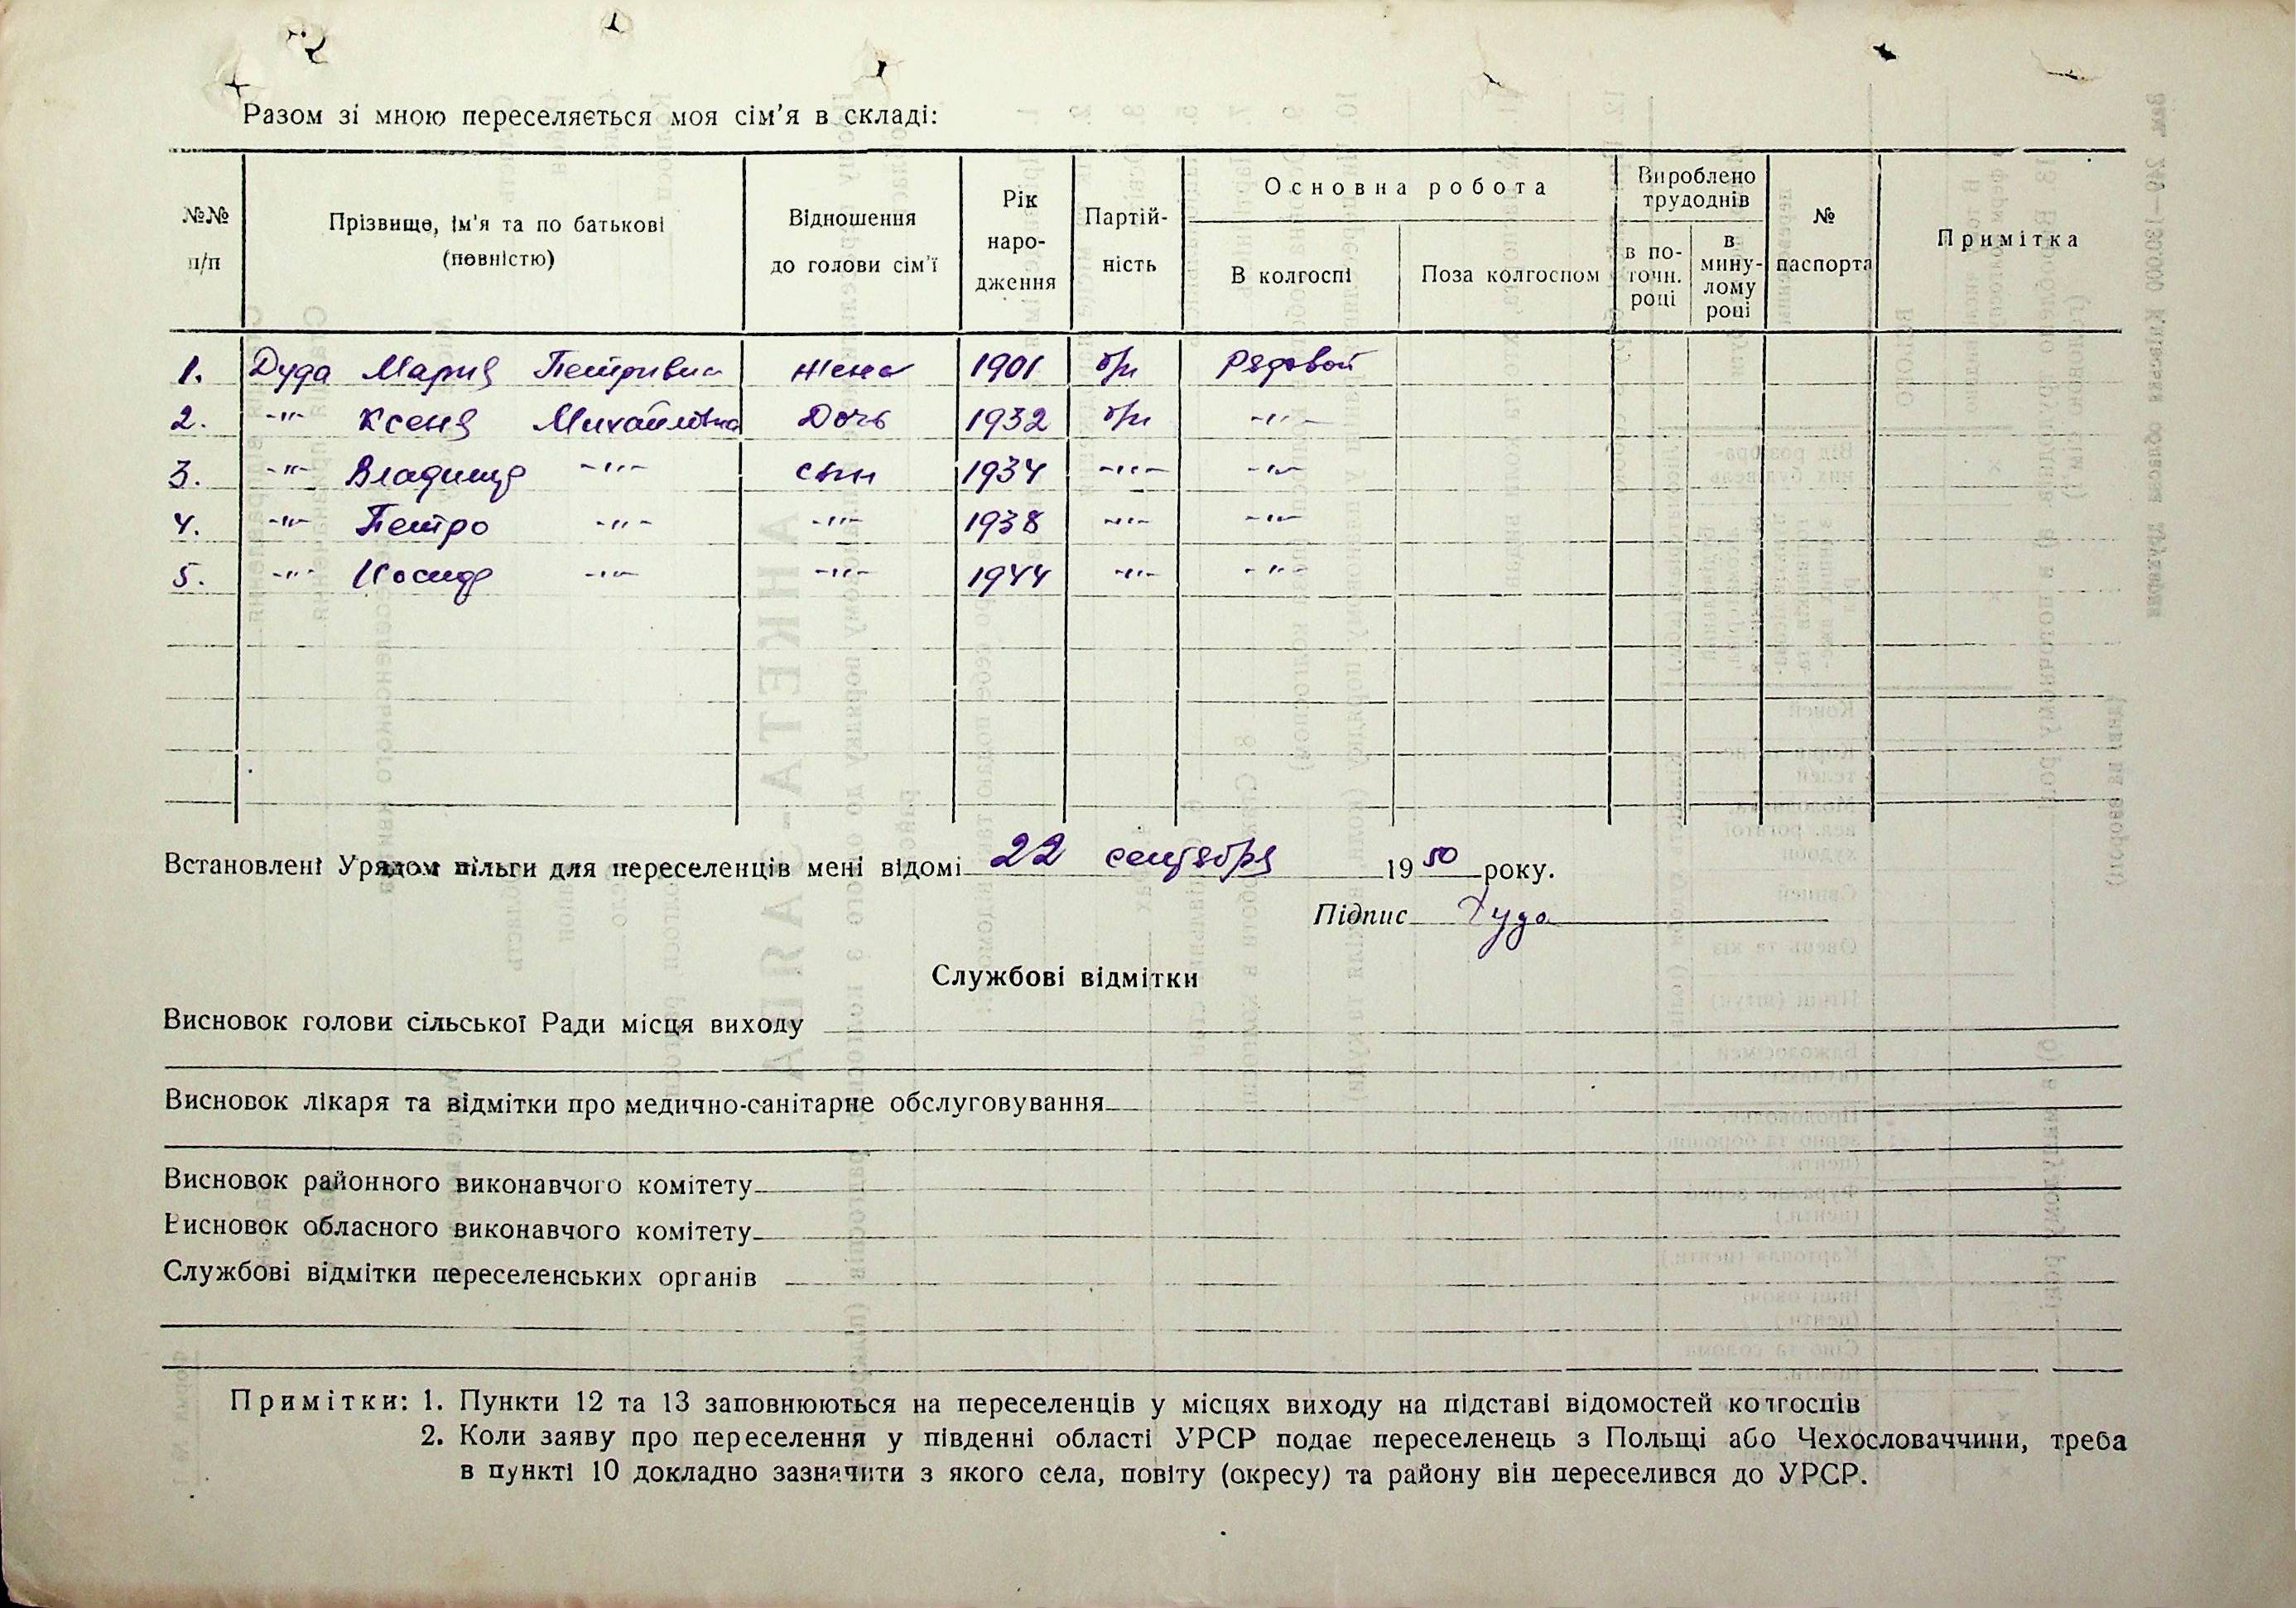 Разом зі мною переселяється моя сім'я в складі:
№№ п/п
Прізвище, ім'я та по батькові (повністю)
Відношення до голови сім'ї
Рік народження
Партійність
Основна робота
В колгоспі
Поза колгоспом
Вироблено трудоднів
в поточн. році
в минулому році
№ паспорта
Примітка
1. Дуда Мария Петривна жена 1901 б/п Рядовой
2. -"- Ксеня Михайлівна Дочь 1932 б/п -"-
3. -"- Владимир -"- сын 1934 -"- -"-
4. -"- Петро -"- -"- 1938 -"- -"-
5. -"- Иосиф -"- -"- 1944 -"- -"-
Встановлені Урядом пільги для переселенців мені відомі 22 сентября 1950 року.
Підпис Дуда
Службові відмітки
Висновок голови сільської Ради місця виходу
Висновок лікаря та відмітки про медично-санітарне обслуговування
Висновок районного виконавчого комітету
Висновок обласного виконавчого комітету
Службові відмітки переселенських органів
Примітки: 1. Пункти 12 та 13 заповнюються на переселенців у місцях виходу на підставі відомостей колгоспів
2. Коли заяву про переселення у південні області УРСР подає переселенець з Польщі або Чехословаччини, треба
в пункті 10 докладно зазначити з якого села, повіту (окресу) та району він переселився до УРСР.